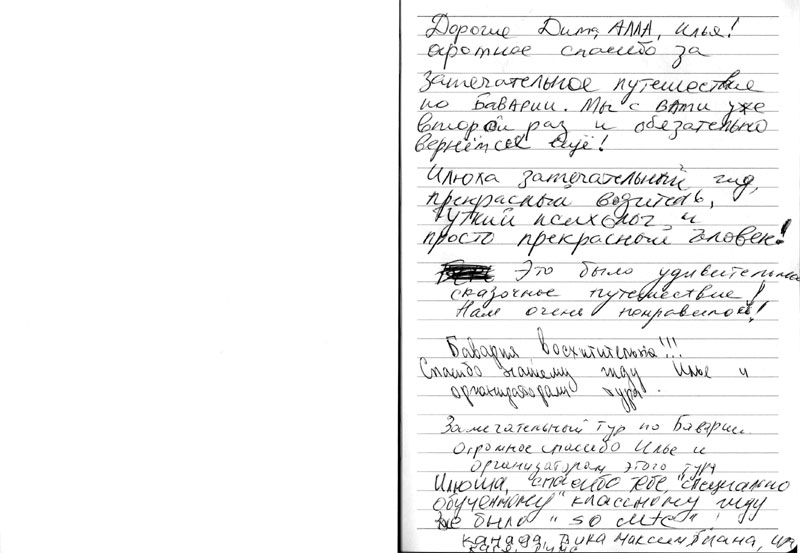 Дорогие Дима, Алла, Илья!
огромное спасибо за
замечательное путешествие
по Баварии. Мы с вами уже
второй раз и обязательно
вернёмся ещё!
Илюха замечательный гид,
прекрасный водитель,
чуткий психолог и
просто прекрасный человек!
Это было удивительно
сказочное путешествие!
Нам очень понравилось!
Бавария восхитительна!!!
Спасибо нашему гиду Илье и
организаторам тура.
Замечательный тур по Баварии.
Огромное спасибо Илье и
организаторам этого тура
Илюша, спасибо тебе, "специально
обученному" классному гиду
было "so
Канада, Вика Максим